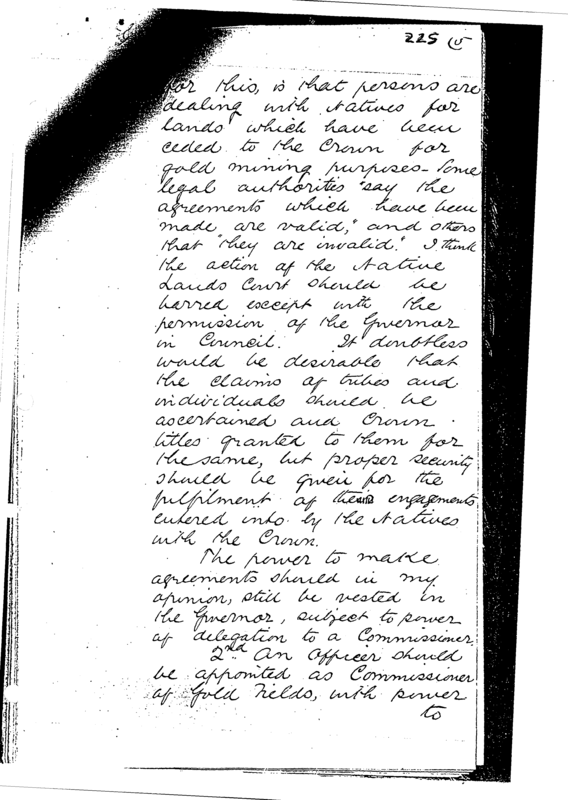 225 (5
for this, is that persons are
dealing with Natives for
lands which have been
ceded to the Crown for
gold mining purposes - Some
legal authorities "say the
agreements which have been
made are valid," and others
that "they are invalid." I think
the action of the Native
Lands Court should be
barred except with the
permission of the Governor
in Council. It doubtless
would be desirable that
the claims of tribes and
individuals should be
ascertained and Crown
titles granted to them for
the same, but proper security
should be given for the
fulfilment of the engagements
entered into by the Natives
with the Crown.
The power to make
agreements should in my
opinion, still be vested in
the Governor, subject to power
of delegation to a Commissioner.
2nd An Officer should
be appointed as Commissioner
of Gold Fields, with power
to